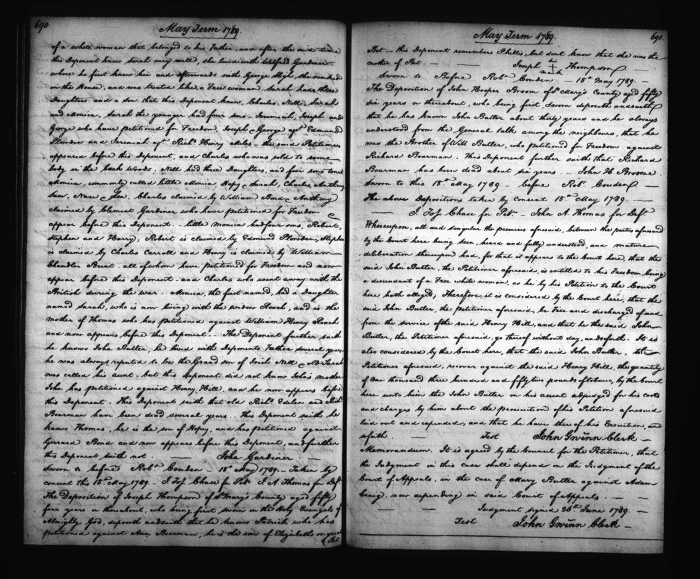 690
May Term 1789.
of a white woman that belonged to his Father, and after the said time
this Deponent knew Sarah very well, she lived with Wilfred Gardiner
where he first knew her and afterwards with George Slye, she worked
in the House, and was treated like a Free woman. Sarah had three
Daughters and a son that this Deponent knew, Charles, Nell, Sarah
and Monica, Sarah the younger had four sons Jeremiah, Joseph and
George who have petitioned for Freedom, Joseph & George agt. Edmund
Plowden and Jeremiah agt. Richd. Henry Miles the said Petitioners
appeared before this Deponent, and Charles who was sold to some
body in the back Woods. Nell had three Daughters, and four sons
Monica, commonly called little Monica Sarah, Charles Anthony
Charles claimed by William Bond Anthony
claimed by Clement Gardiner who have petitioned for Freedom
appear before this Deponent. little Monica had four sons, Robert,
Stephen and Henry, Robert is claimed by Edmund Plowden, Stephen
is claimed by Charles Carroll and Henry is claimed by William
Chandler Brent. all of whom have petitioned for Freedom and now
appear before this Deponent and Charles who went away with the
British during the War. Monica, the first named, had a Daughter
named Sarah, who is now living with the widow Roach, and is the
mother of Thomas who has petitioned against William Henry Roach
and now appears before this Deponent. The Deponent further saith
he knows John Butler, he lived with Deponents Father several years
he was always reputed to be the Grand son of Irish Nell, Old Sarah
was called his aunt, but this Deponent did not know John's mother
John has petitioned against Henry Hill, and he now appears before
this Deponent. This Deponent saith that old Richd. Edelen and Richd.
Boarman have been dead several years. This Deponent saith he
knows Thomas, he is the son of and has petitioned against
Gerard Bond and now appears before this Deponent, and further
this Deponent saith not. John Gardiner
Sworn to before Robt. Couden 18th May 1789. Taken by
consent this 18th May 1789. J Tosh Chase for Petr. J A Thomas for Deft.
The Deposition of Joseph Thompson of St. Mary's County aged fifty
five years or thereabout, who being first sworn on the Holy Evangels of
Almighty God, deposeth and saith that he knows Patrick who has
petitioned against Ann Boarman, he is the son of Elizabeth
691.
May Term 1789.
Pat. this Deponent remembers Phillis but dont know that she was the
mother of Pat. Joseph Thompson
mark
Sworn to Before Robt. Couden 18th May 1789.
The Deposition of John Hooper Broom of St. Mary's County aged fifty
six years or thereabout, who being first sworn deposeth and saith
that he has known John Butler about thirty years and he always
understood from the General talk among the neighbours, that he
was the Brother of Will Butler, who petitioned for Freedom against
Richard Boarman. This Deponent further saith that Richard
Boarman has been dead about six years. John H. Broome
Sworn to this 18th May 1789. before Robt. Couden
The above Depositions taken by consent 18th May 1789.
J Tosh Chase for Petr. John A Thomas for Deft.
Whereupon, all and singular the premises aforesaid, between the parties aforesaid
by the Court here being seen, heard and fully understood, and mature
deliberation thereupon had, for that it appears to the Court here, that the
said John Butler, the Petitioner aforesaid is entitled to his Freedom, being
a descendant of a Free white woman, as he by his Petition to the Court
here hath alleged, Therefore, it is considered by the Court here, that the
said John Butler, the petitioner aforesaid, be Free and discharged of and
from the service of the said Henry Hill, and that he the said John
Butler, the Petitioner aforesaid, go thereof without day, and so forth. It is
also considered by the Court here, that the said John Butler, the
Petitioner aforesaid, recover against the said Henry Hill, the quantity
of one thousand three hundred and fifty two pounds of tobacco, by the Court
here unto him the John Butler on his assent adjudged for his costs
and charges by him about the prosecution of his Petition aforesaid
laid out and expended, and that he have thereof his Execution, and
so forth. Test John Gwinn Clerk
Memorandum. It is agreed by the Counsel for the Petitioner, that
the Judgment in this case shall depend on the Judgment of the
Court of Appeals, in the case of Mary Butler against Adam
Craig, now depending in said Court of Appeals.
Judgment signed 26th June 1789.
Test John Gwinn Clerk